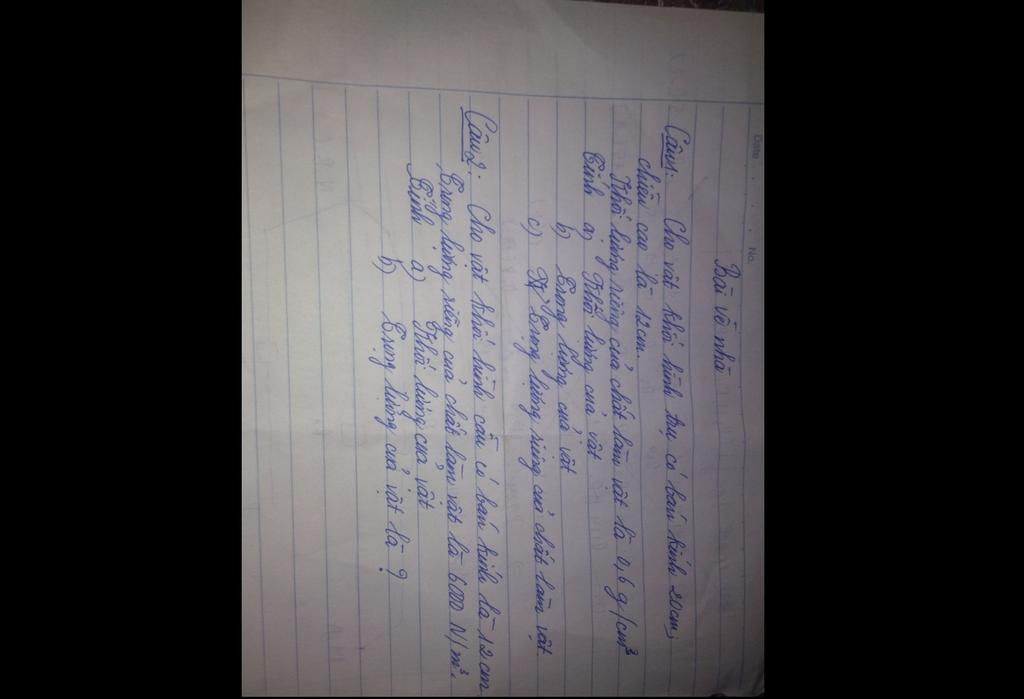 Date . . . . . No.
Bài về nhà
Câu 1: Cho vật khối hình trụ có bán kính 20cm;
chiều cao là 12cm.
Khối lượng riêng của chất làm vật là 0,6 g/cm³
Tính a) Khối lượng của vật
b) Trọng lượng của vật
c) Trọng lượng riêng của chất làm vật.
Câu 2: Cho vật khối hình cầu có bán kính là 12 cm
Trọng lượng riêng của chất làm vật là 6000 N/m³.
Tính a) Khối lượng của vật
b) Trọng lượng của vật là ?